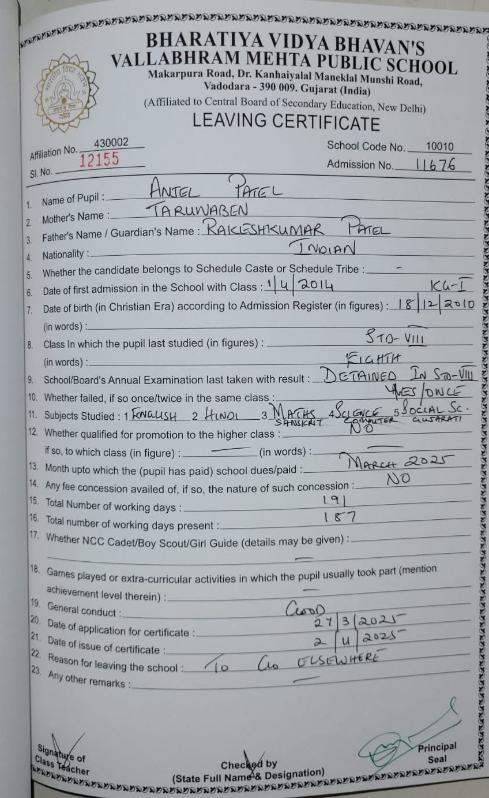 BHARATIYA VIDYA BHAVAN'S
VALLABHRAM MEHTA PUBLIC SCHOOL
Makarpura Road, Dr. Kanhaiyalal Maneklal Munshi Road,
Vadodara - 390 009. Gujarat (India)
(Affiliated to Central Board of Secondary Education, New Delhi)
LEAVING CERTIFICATE
Affiliation No. 430002 School Code No. 10010
Sl. No. 12155 Admission No. 11676
1. Name of Pupil : ANJEL PATEL
2. Mother's Name : TARUNABEN
3. Father's Name / Guardian's Name : RAKESHKUMAR PATEL
4. Nationality : INDIAN
5. Whether the candidate belongs to Schedule Caste or Schedule Tribe : -
6. Date of first admission in the School with Class : 1/4/2014 KG-I
7. Date of birth (in Christian Era) according to Admission Register (in figures) : 18/12/2010
(in words) :
8. Class In which the pupil last studied (in figures) : STD-VIII
(in words) : EIGHTH
9. School/Board's Annual Examination last taken with result : DETAINED IN STD-VIII
10. Whether failed, if so once/twice in the same class : YES/ONCE
11. Subjects Studied : 1 ENGLISH 2 HINDI 3 MATHS 4 SCIENCE 5 SOCIAL SC.
SANSKRIT COMPUTER GUJARATI
12. Whether qualified for promotion to the higher class : NO
if so, to which class (in figure) : — (in words) : —
13. Month upto which the (pupil has paid) school dues/paid : MARCH 2025
14. Any fee concession availed of, if so, the nature of such concession : NO
15. Total Number of working days : 191
16. Total number of working days present : 187
17. Whether NCC Cadet/Boy Scout/Girl Guide (details may be given) :
—
18. Games played or extra-curricular activities in which the pupil usually took part (mention
achievement level therein) : —
19. General conduct : GOOD
20. Date of application for certificate : 27/3/2025
21. Date of issue of certificate : 2/4/2025
22. Reason for leaving the school : TO GO ELSEWHERE
23. Any other remarks : —
Signature of Class Teacher
Checked by
(State Full Name & Designation)
Principal
Seal